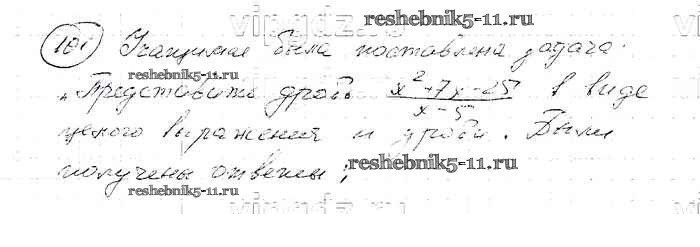 reshebnik5-11.ru
101 Учащимся была поставлена задача:
reshebnik5-11.ru
„Представить дробь x²+7x-25 / x-5 в виде
целого выражения и дроби. Были
получены ответы;
reshebnik5-11.ru
reshebnik5-11.ru